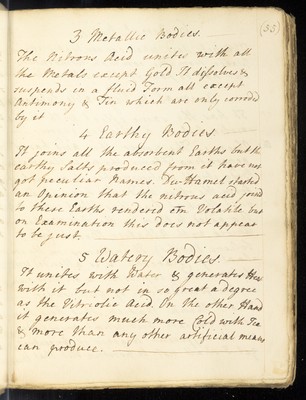 (33)
3 Metallic Bodies.
The Nitrous Acid unites with all
the Metals except Gold It dissolves &
suspends in a fluid Form all except
Antimony & Tin which are only corroded
by it
4 Earthy Bodies
It joins all the absorbent Earths but the
earthy Salts produced from it have not
got peculiar Names. Du-Hamel started
an Opinion that the nitrous acid joind
to these Earths rendered Volatile but
on Examination this Does not appear
to be just.
5 Watery Bodies.
It unites with Water & generates Heat
with it but not in so great a degree
as the Vitriolic Acid On the other Hand
it generates much more Cold with Ice
& more than any other artificial means
can produce.